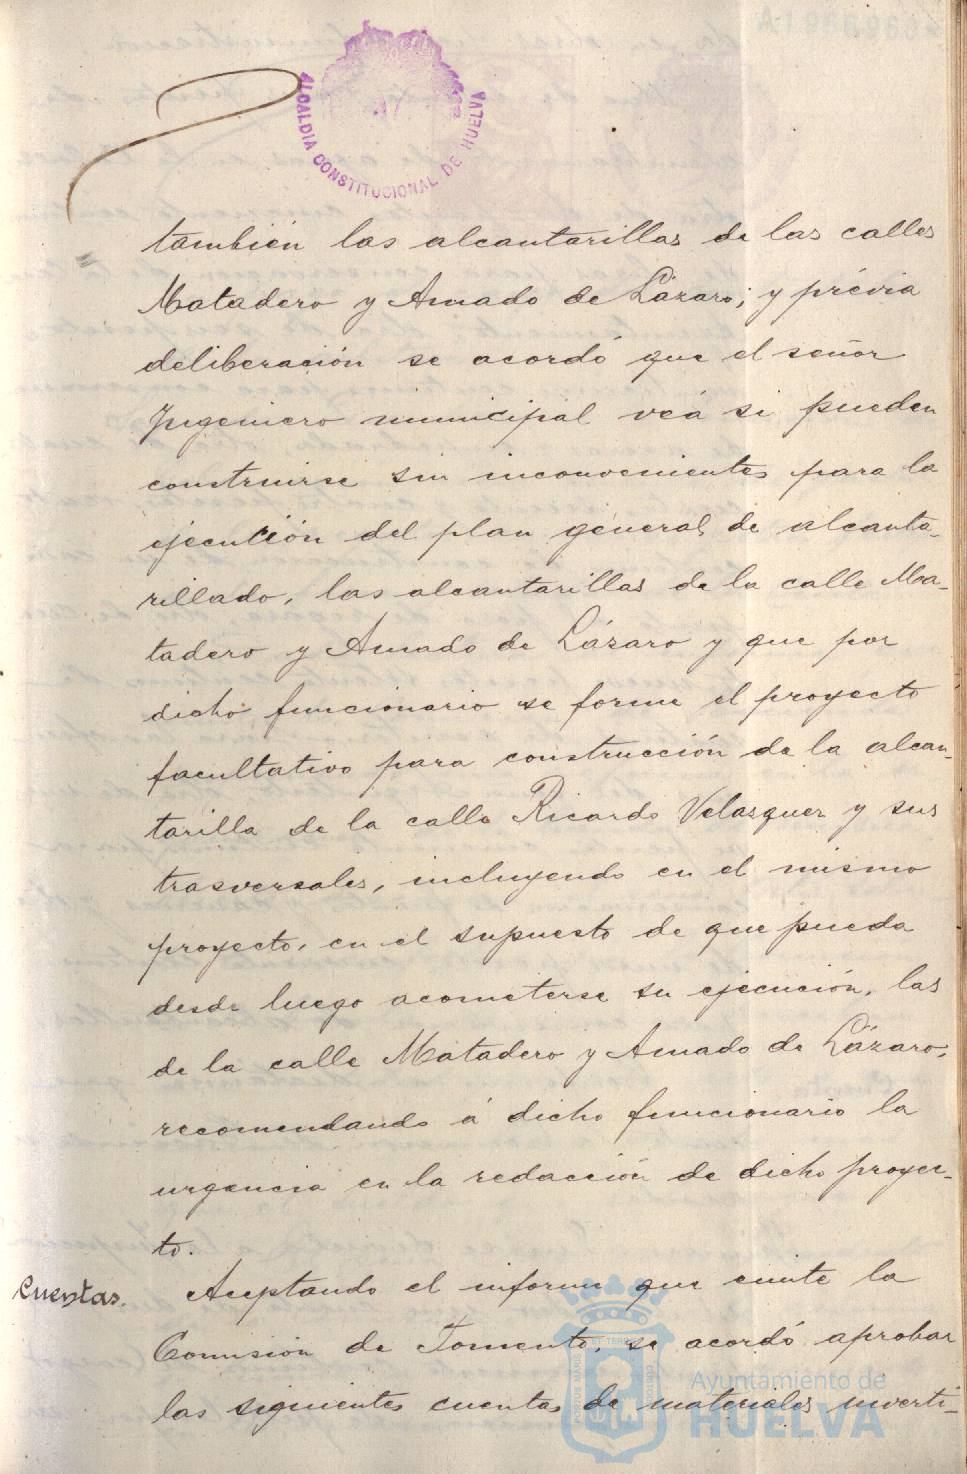 A1966960
ALCALDIA CONSTITUCIONAL DE HUELVA
tambien las alcantarillas de las calles
Matadero y Amado de Lázaro; y prévia
deliberación se acordó que el señor
Ingeniero municipal veá si pueden
construirse sin inconvenientes para la
ejecución del plan general de alcanta-
rillado, las alcantarillas de la calle Ma-
tadero y Amado de Lázaro y que por
dicho funcionario se forme el proyecto
facultativo para construcción de la alcan-
tarilla de la calle Ricardo Velazquez y sus
trasversales, incluyendo en el mismo
proyecto, en el supuesto de que pueda
desde luego acometerse su ejecución, las
de la calle Matadero y Amado de Lázaro,
recomendando á dicho funcionario la
urgencia en la redacción de dicho proyec-
to.
Cuentas. Aceptando el informe que emite la
Comisión de Fomento, se acordó aprobar
las siguientes cuentas de materiales inverti-
Ayuntamiento de
HUELVA